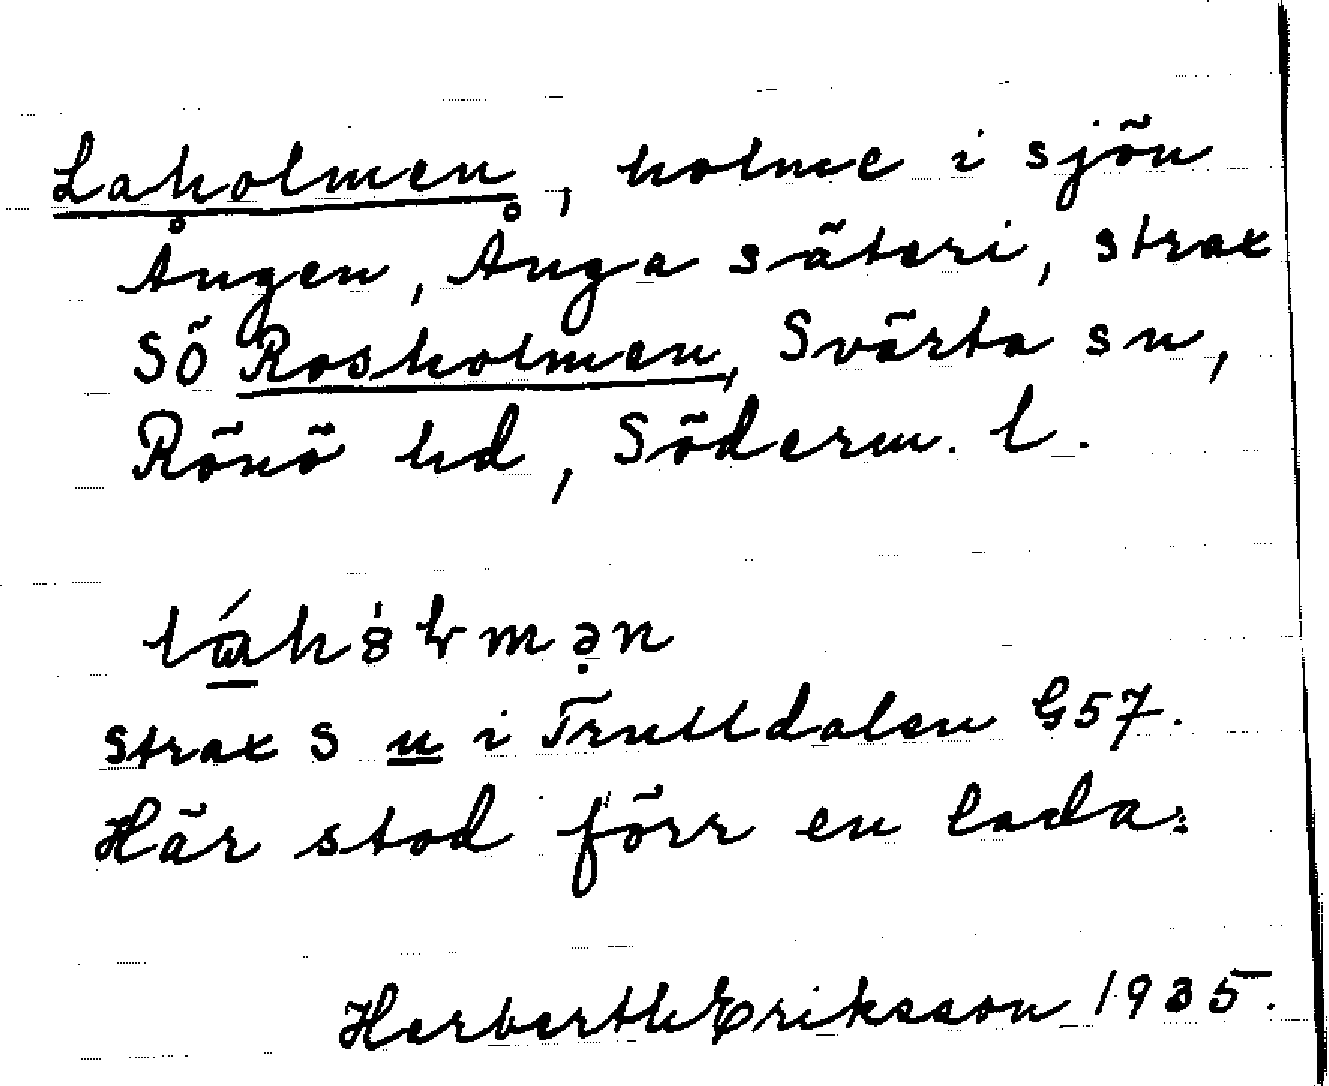 Laholmen, holme i sjön
Ången, Ånga säteri, strax
SÖ Rosholmen, Svärta sn,
Rönö hd, Söderm. l.
strax S u i Trulldalen G57.
Här stod förr en lada.
Herberth Eriksson 1935.